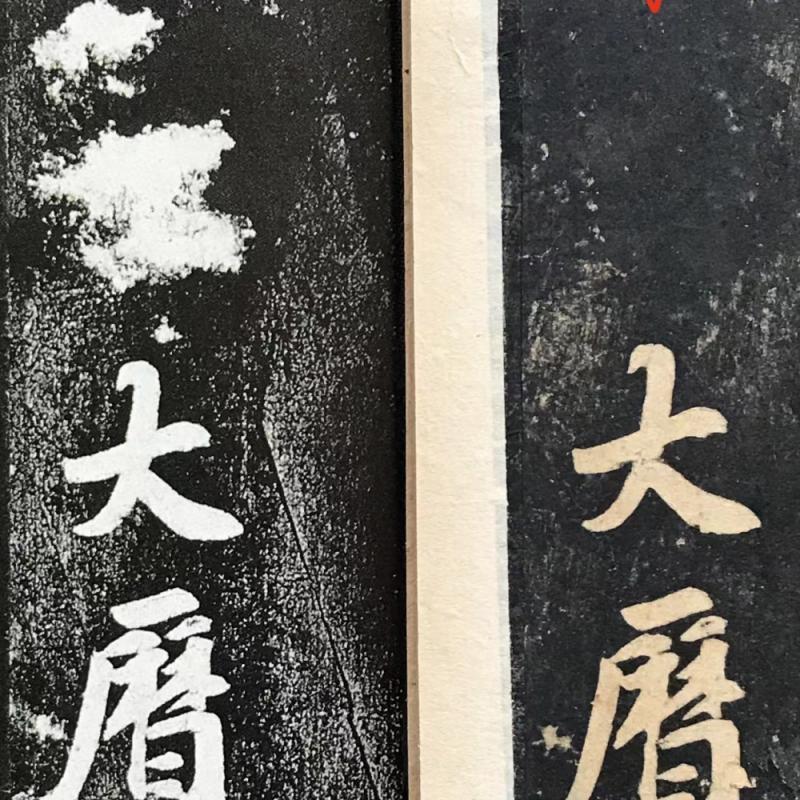 大曆
大曆